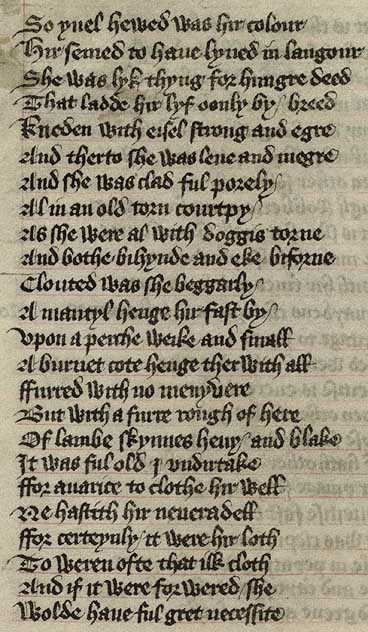 So yuel hewed was hir colour
Hir semed to haue lyued in langour
She was lyk thyng for hungre deed
That ladde hir lyf oonly by breed
Kneden with eisel strong and egre
And therto she was lene and megre
And she was clad ful porely
Al in an old torn courtpy
As she were al with doggis torne
And bothe bihynde and eke biforne
Clouted was she beggarly
A mantyl henge hir fast by
Vpon a perche weike and small
A burnet cote henge ther with all
ffurred with no menyvere
But with a furre rough of here
Of lambe skynnes heuy and blake
It was ful old I vndirtake
ffor auarice to clothe hir well
Ne hastith hir neueradell
ffor certeynly it were hir loth
To weren ofte that ilk cloth
And if it were forwered she
Wolde haue ful gret necessite